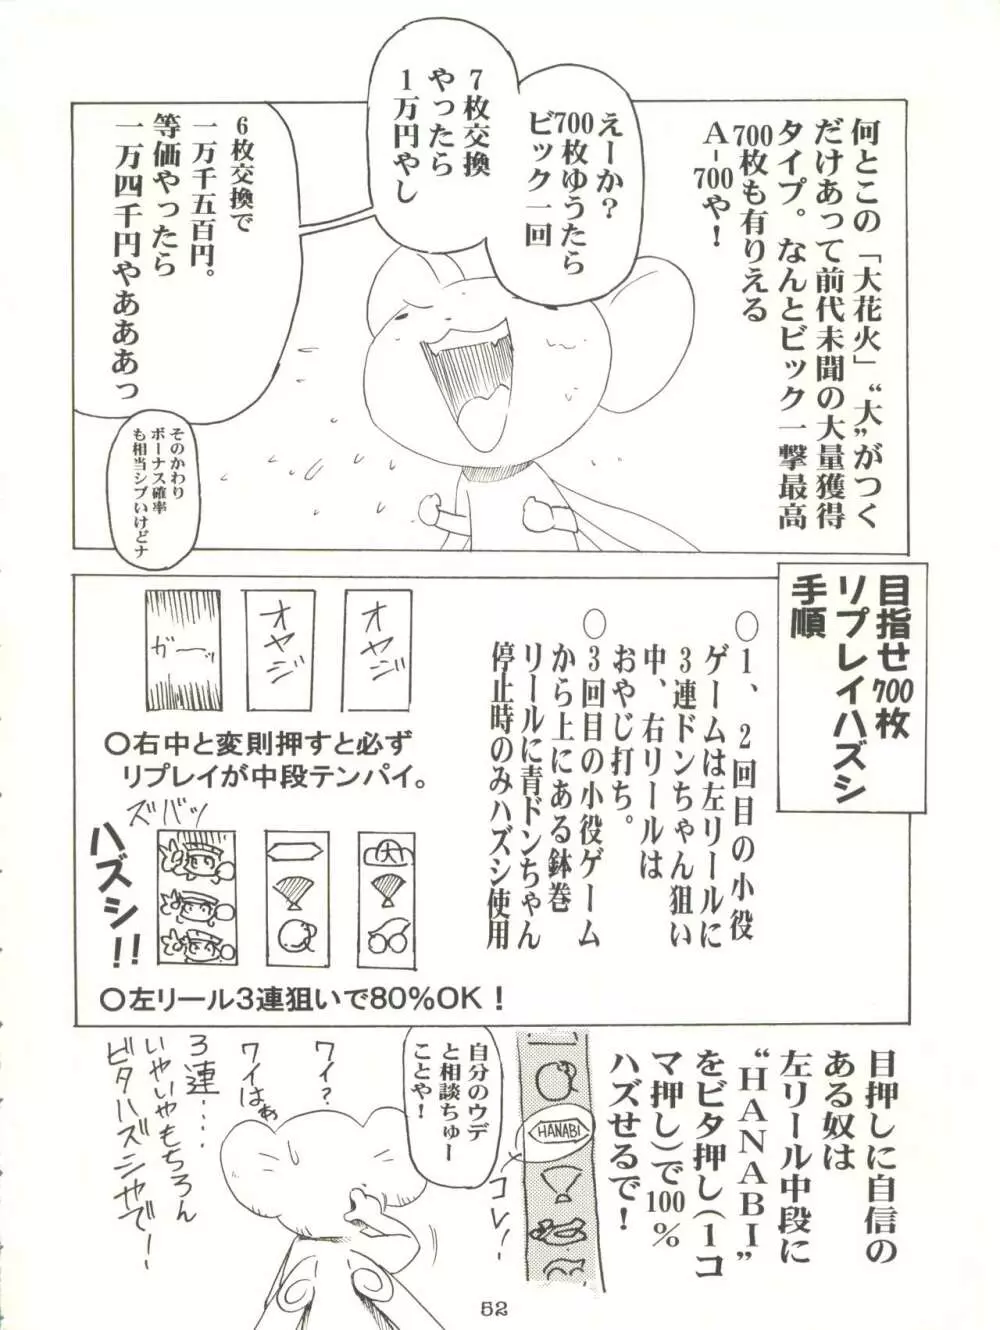 何とこの「大花火」“大”がつく
だけあって前代未聞の大量獲得
タイプ。なんとビック一撃最高
700枚も有りえる
A-700や！
えーか？
700枚ゆうたら
ビック一回
7枚交換
やったら
1万円やし
6枚交換で
一万千五百円。
等価やったら
一万四千円やあああっ
そのかわり
ボーナス確率
も相当シブいけどナ
目指せ700枚
リプレイハズシ
手順
○1、2回目の小役
ゲームは左リールに
3連ドンちゃん狙い
中、右リールは
おやじ打ち。
○3回目の小役ゲーム
から上にある鉢巻
リールに青ドンちゃん
停止時のみハズシ使用
オヤジ
オヤジ
ガーッ
○右中と変則押すと必ず
リプレイが中段テンパイ。
ズバッ
ハズシ!!
大
○左リール3連狙いで80%OK！
目押しに自信の
ある奴は
左リール中段に
“HANABI”
をビタ押し(1コ
マ押し)で100%
ハズせるで！
HANABI
コレ！
自分のウデ
と相談ちゅー
ことや！
ワイ？
ワイはぁ
3連……
いやいやもちろん
ビタハズシやで！
52